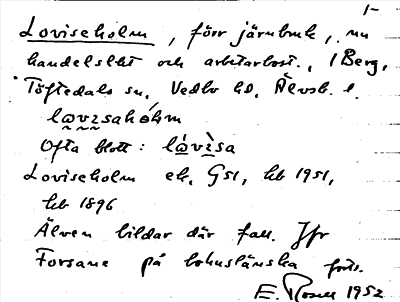 1-
Loviseholm, förr järnbruk, nu
handelslht och arbetarbost., i Berg,
Töftedals sn, Vedbo hd, Älvsb. l.
lovisahólm
Ofta blott: lòvìsa
Loviseholm ek, GS1, hb 1951,
hb 1896
Älven bildar där fall. Jfr
Forsane på bohuslänska
E. Rosell 1952